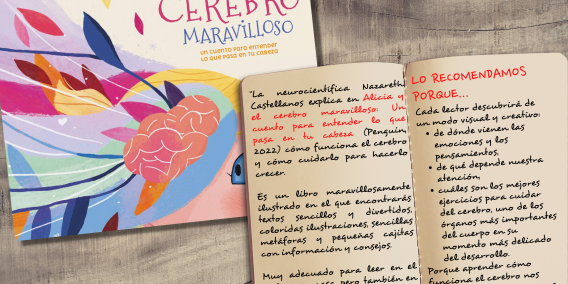 CEREBRO
MARAVILLOSO
UN CUENTO PARA ENTENDER
LO QUE PASA EN TU CABEZA
"La neurocientífica Nazareth
Castellanos explica en Alicia y
el cerebro maravilloso: Un
cuento para entender lo que
pasa en tu cabeza (Penguin,
2022) cómo funciona el cerebro
y cómo cuidarlo para hacerlo
crecer.
Es un libro maravillosamente
ilustrado en el que encontrarás
textos sencillos y divertidos,
coloridas ilustraciones, sencillas
metáforas y pequeñas cajitas
con información y consejos.
Muy adecuado para leer en el
pero también en
LO RECOMENDAMOS
PORQUE...
Cada lector descubrirá de
un modo visual y creativo:
• de dónde vienen las
emociones y los
pensamientos,
• de qué depende nuestra
atención,
• cuáles son los mejores
ejercicios para cuidar
del cerebro, uno de los
órganos más importantes
del cuerpo en su
momento más delicado
del desarrollo.
Porque aprender cómo
funciona el cerebro nos